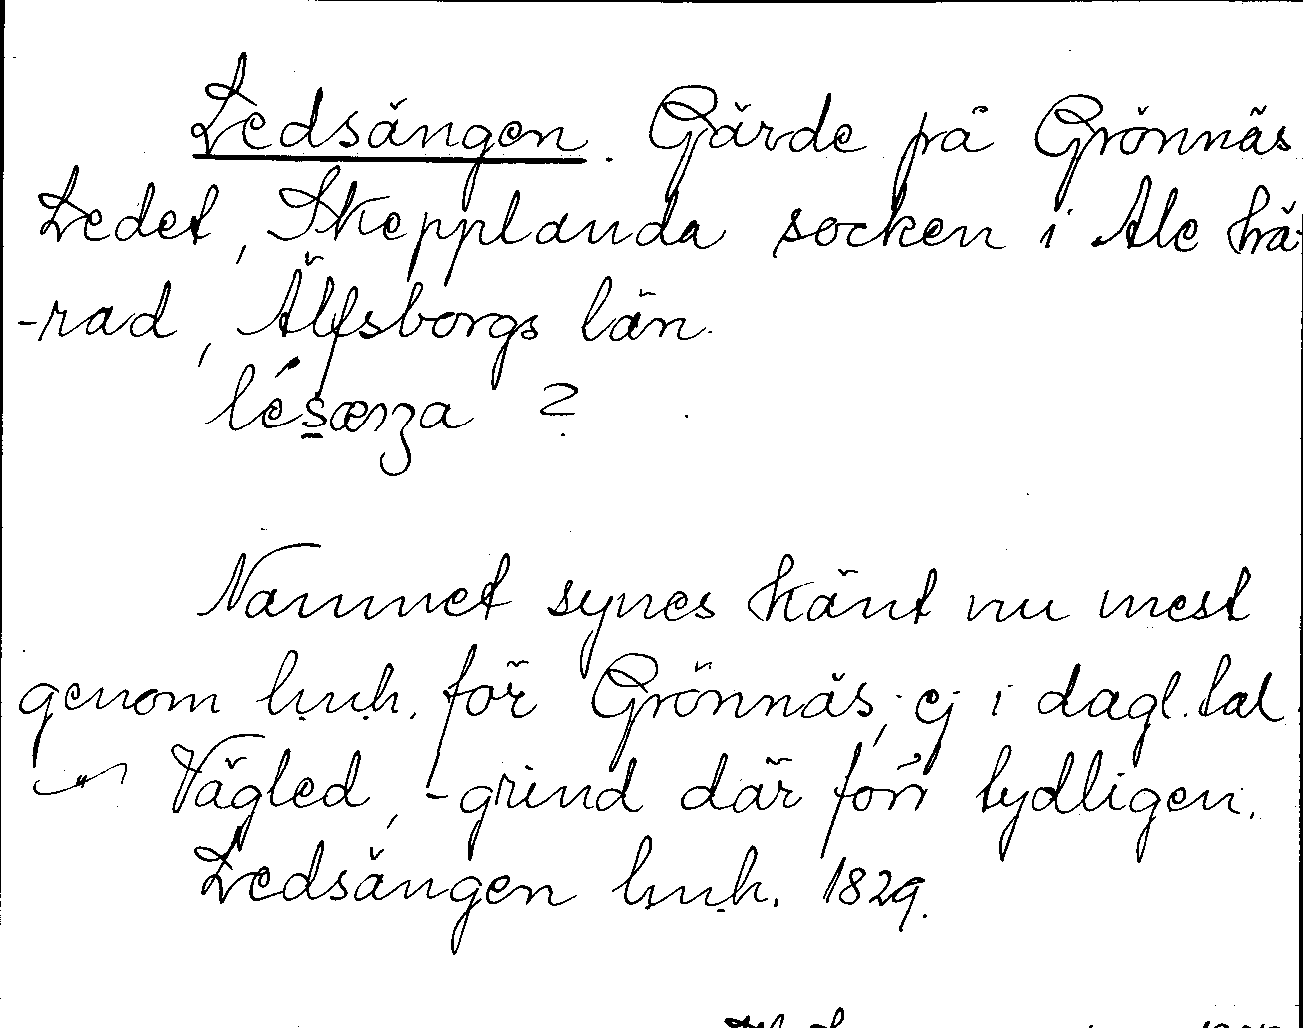 Ledsängen. Gärde på Grönnäs
Ledet, Skepplanda socken i Ale hä-
-rad, Älfsborgs län.
lésæŋa ?
Namnet synes känt nu mest
genom lm.h. för Grönnäs; ej i dagl. tal.
Vägled, -grind där förr tydligen.
Ledsängen lm.h. 1829.